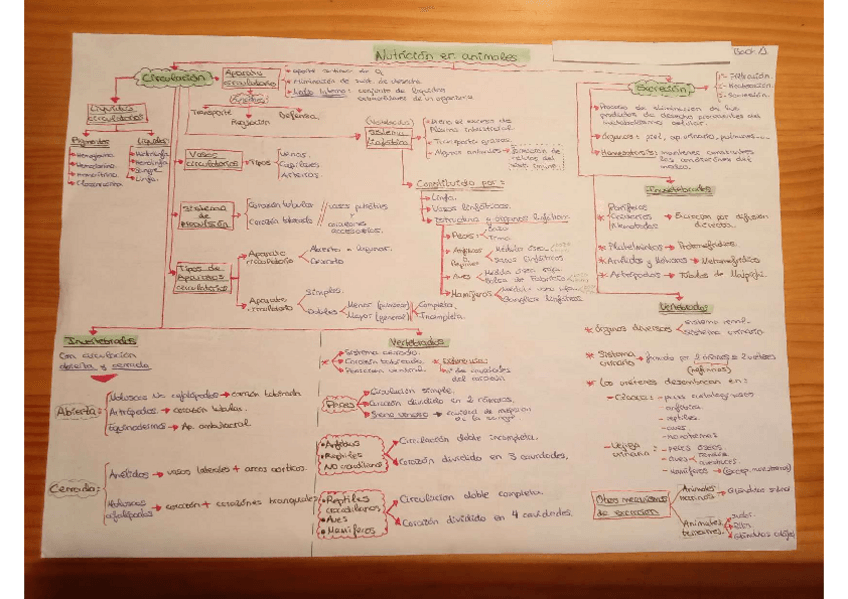 Nutrición en animales
Bach A
Circulación
Aparato circulatorio
Aporte continuo de O₂
Eliminación de sust. de desecho
Medio interno: conjunto de líquidos
extracelulares de un organismo
Funciones
Transporte
Regulación
Defensa
Líquidos circulatorios
Pigmentos
Hemoglobina
Hemocianina
Hemeritrina
Clorocruorina
Líquidos
Hidrolinfa
Hemolinfa
Sangre
Linfa
Vasos circulatorios
Tipos
Venas
Capilares
Arterias
Sistema de propulsión
Corazón tubular
Corazón tabicado
vasos pulsátiles
y
corazones accesorios
Tipos de aparatos circulatorios
Aparato circulatorio
Abierto o lagunar
Cerrado
Aparato circulatorio
Simples
Dobles
Menor (pulmonar)
Mayor (general)
Completa
Incompleta
(Vertebrados)
Sistema linfático
Drena el exceso de
plasma intersticial
Transporta grasas
Constituido por:
Linfa
Vasos linfáticos
Estructuras y órganos linfáticos
Peces:
Bazo
Timo
Anfibios y Reptiles
Médula ósea
Ganglios linfáticos
Aves
Médula ósea roja
Bolsa de Fabricio
Mamíferos
Médula ósea roja
Ganglios linfáticos
Excreción
1- Filtración
2- Reabsorción
3- Secreción
Proceso de eliminación de los
productos de desecho procedentes del
metabolismo celular.
Órganos: piel, ap. urinario, pulmones...
Homeostasis: mantener constantes
las condiciones del
medio.
Invertebrados
Poríferos
Cnidarios
Nematodos
Excretan por difusión
directa.
Platelmintos → Protonefridios
Anélidos y Moluscos → Metanefridios
Artrópodos → Túbulos de Malpighi
Vertebrados
Órganos diversos
Sistema renal
Sistema urinario
Sistema urinario → formado por 2 riñones + 2 uréteres
(nefronas)
Los uréteres desembocan en:
- Cloaca:
- peces cartilaginosos
- anfibios
- reptiles
- aves
- monotremas
- Vejiga urinaria:
- peces óseos
- mamíferos (excep. monotremas)
Otros mecanismos de excreción
Animales marinos → Glándulas salinas
Animales terrestres
Sudor
Bilis
Invertebrados
Con circulación
abierta y cerrada
Abierta:
Moluscos No cefalópodos → corazón tabicado
Artrópodos → corazón tubular
Equinodermos → Ap. ambulacral
Cerrada:
Anélidos → vasos laterales + arcos aórticos.
Moluscos cefalópodos → corazón + corazones branquiales
Vertebrados
Sistema cerrado
Corazón tabicado
Posición ventral
nº de cavidades
del corazón
Peces
Circulación simple.
Corazón dividido en 2 cámaras.
Seno venoso
de la sangre
Anfibios
Reptiles
NO cocodrilianos
Circulación doble incompleta.
Corazón dividido en 3 cavidades.
Reptiles cocodrilianos
Aves
Mamíferos
Circulación doble completa.
Corazón dividido en 4 cavidades.